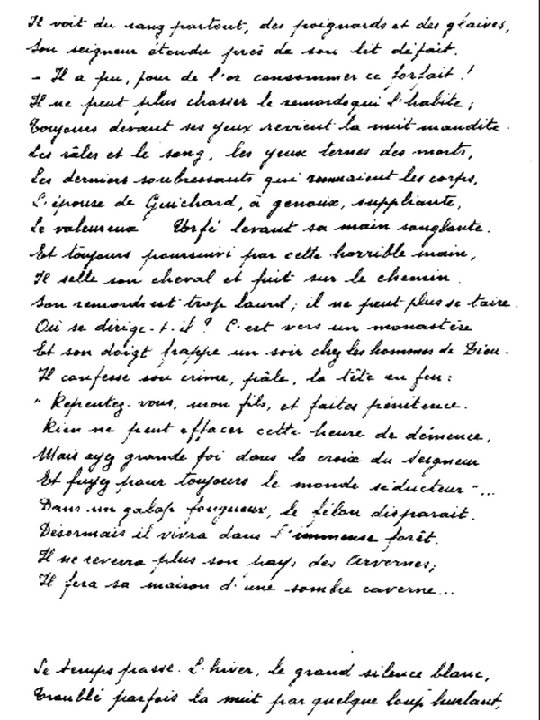 Il voit du sang partout, des poignards et des glaives,
Son seigneur étendu près de son lit défait.
- Il a pu, pour de l'or consommer ce forfait !
Il ne peut plus chasser le remords qui l'habite ;
Toujours devant ses yeux revient la nuit maudite.
Les râles et le sang, les yeux ternes des morts,
Les derniers soubressauts qui remuaient les corps,
L'épouse de Guichard, à genoux, suppliante,
Le valeureux Urfé levant sa main sanglante.
Et toujours poursuivi par cette horrible main,
Il selle son cheval et fuit sur le chemin.
Son remords est trop lourd ; il ne peut plus se taire.
Où se dirige-t-il ? C'est vers un monastère
Et son doigt frappe un soir chez les hommes de Dieu.
Il confesse son crime, pâle, la tête en feu :
" Repentez-vous, mon fils, et faites pénitence.
Rien ne peut effacer cette heure de démence,
Mais ayez grande foi dans la croix du Seigneur
Et fuyez pour toujours le monde séducteur "...
Dans un galop fougueux, le félon disparait.
Désormais il vivra dans l'immense forêt.
Il ne reverra plus son pays des Arvernes ;
Il fera sa maison d'une sombre caverne...
Le temps passe. L'hiver, le grand silence blanc,
Troublé parfois la nuit par quelque loup hurlant,